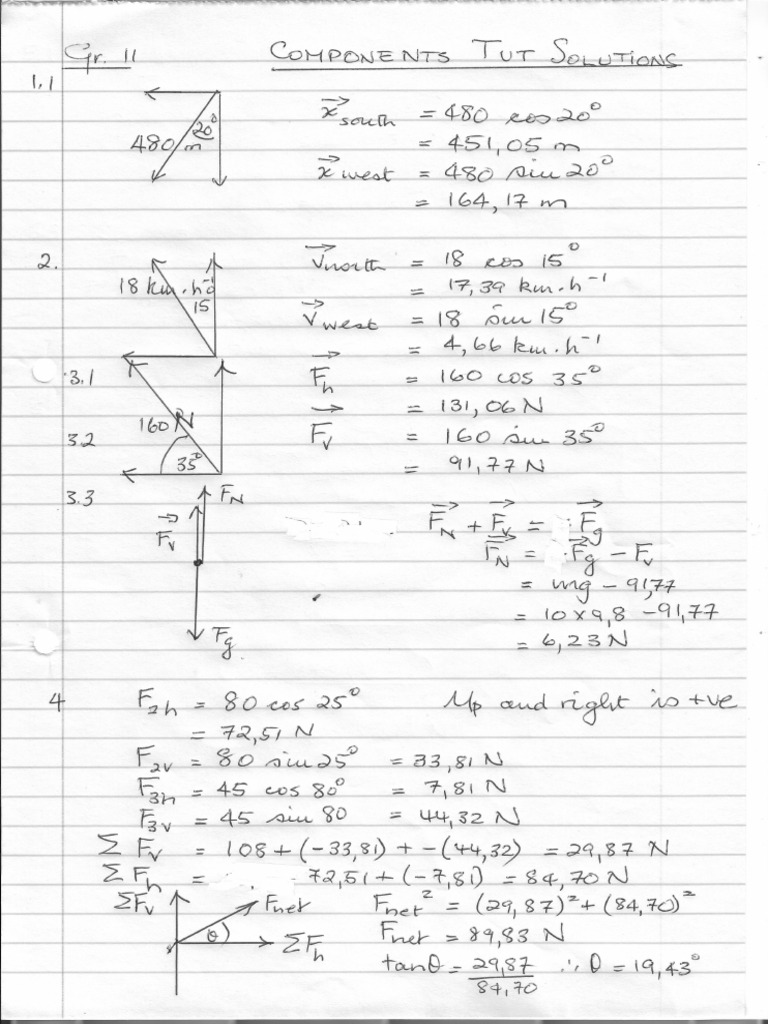 Gr. 11 COMPONENTS TUT SOLUTIONS
1.1
20°
480 m
x south = 480 cos 20°
= 451,05 m
x west = 480 sin 20°
= 164,17 m
2.
18 km.h⁻¹
15
v north = 18 cos 15°
= 17,39 km.h⁻¹
v west = 18 sin 15°
= 4,66 km.h⁻¹
3.1
Fh = 160 cos 35°
= 131,06 N
160 N
3.2
35°
Fv = 160 sin 35°
= 91,77 N
3.3
FN
Fv
Fg
FN + Fv = Fg
FN = Fg - Fv
= mg - 91,77
= 10 x 9,8 - 91,77
= 6,23 N
4
F2h = 80 cos 25° Up and right is +ve
= 72,51 N
F2v = 80 sin 25° = 33,81 N
F3h = 45 cos 80° = 7,81 N
F3v = 45 sin 80 = 44,32 N
Σ Fv = 108 + (-33,81) + -(44,32) = 29,87 N
Σ Fh = 72,51 + (-7,81) = 84,70 N
ΣFv
Fnet
θ
ΣFh
Fnet² = (29,87)² + (84,70)²
Fnet = 89,83 N
tanθ = 29,87/84,70 ∴ θ = 19,43°